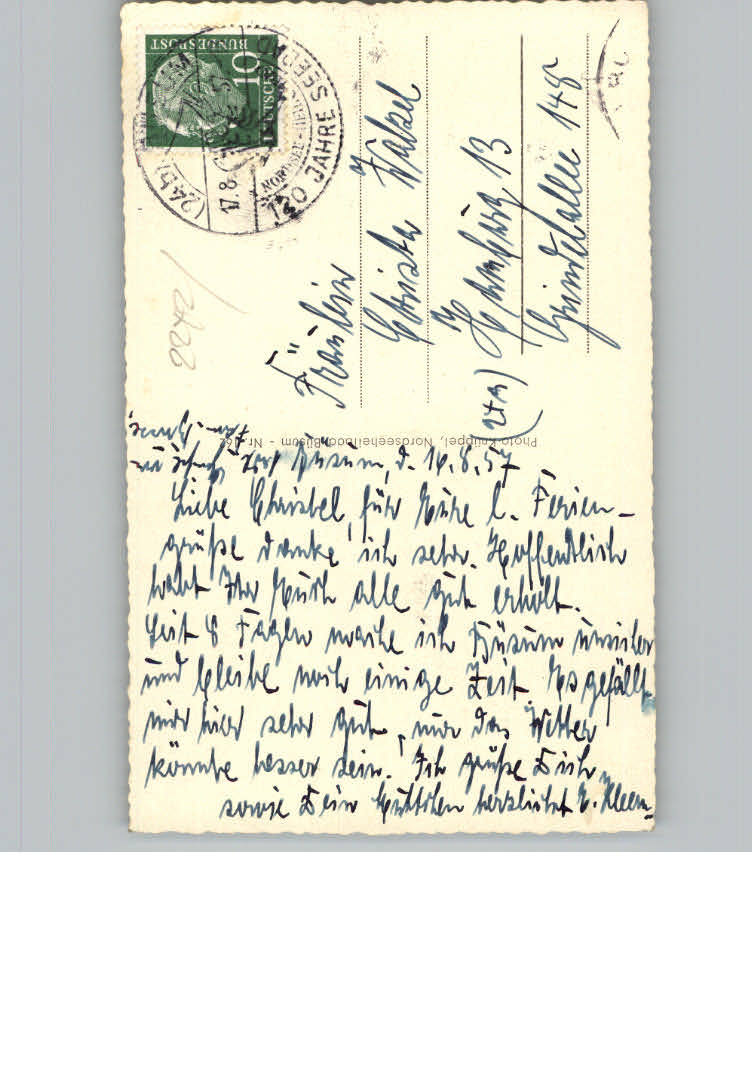 BUNDESPOST
10
DEUTSCHE
(24b)
17.8
120 JAHRE SEEBAD
NORDSEE-
2242/
Fräulein
Christa Walzel
Hamburg 13
(24a)
Grindelallee 148
Photo Knüppel, Nordseeheilbad Büsum - Nr. 62
Büsum, d. 16.8.57
Liebe Christel, für Eure l. Ferien-
grüße danke ich sehr. Hoffentlich
habt Ihr Euch alle gut erholt.
Seit 8 Tagen mache ich Büsum unsicher
und bleibe noch einige Zeit. Es gefällt
mir hier sehr gut, nur das Wetter
könnte besser sein. Ich grüße Dich
sowie Dein Muttchen herzlichst E. Kleem-